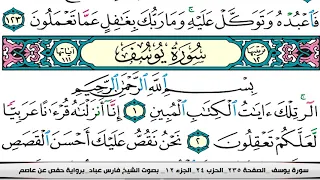 فَٱعۡبُدۡهُ وَتَوَكَّلۡ عَلَيۡهِۚ وَمَا رَبُّكَ بِغَٰفِلٍ عَمَّا تَعۡمَلُونَ ١٢٣
سُورَةُ يُوسُفَ
بِسۡمِ ٱللَّهِ ٱلرَّحۡمَٰنِ ٱلرَّحِيمِ
الٓرۚ تِلۡكَ ءَايَٰتُ ٱلۡكِتَٰبِ ٱلۡمُبِينِ ١ إِنَّآ أَنزَلۡنَٰهُ قُرۡءَٰنًا عَرَبِيّٗا
لَّعَلَّكُمۡ تَعۡقِلُونَ ٢ نَحۡنُ نَقُصُّ عَلَيۡكَ أَحۡسَنَ ٱلۡقَصَصِ
سورة يوسف _ الصفحة ٢٣٥ _ الحزب ٢٤ _ الجزء ١٢ _ بصوت الشيخ فارس عباد _ برواية حفص عن عاصم